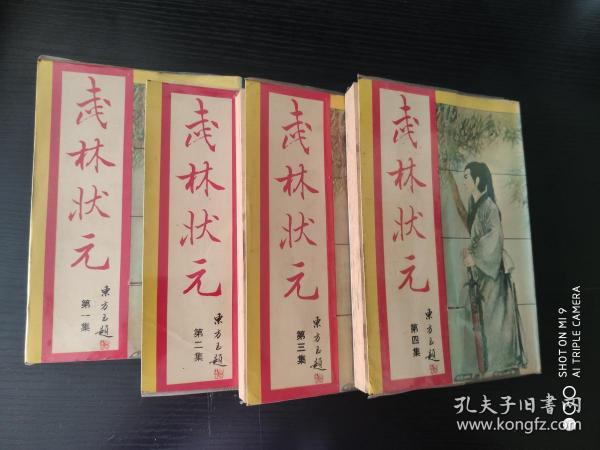 武林状元
東方玉題
第一集
武林状元
東方玉題
第二集
武林状元
東方玉題
第三集
武林状元
東方玉題
第四集
SHOT ON MI 9
AI TRIPLE CAMERA
孔夫子旧书网
www.kongfz.com